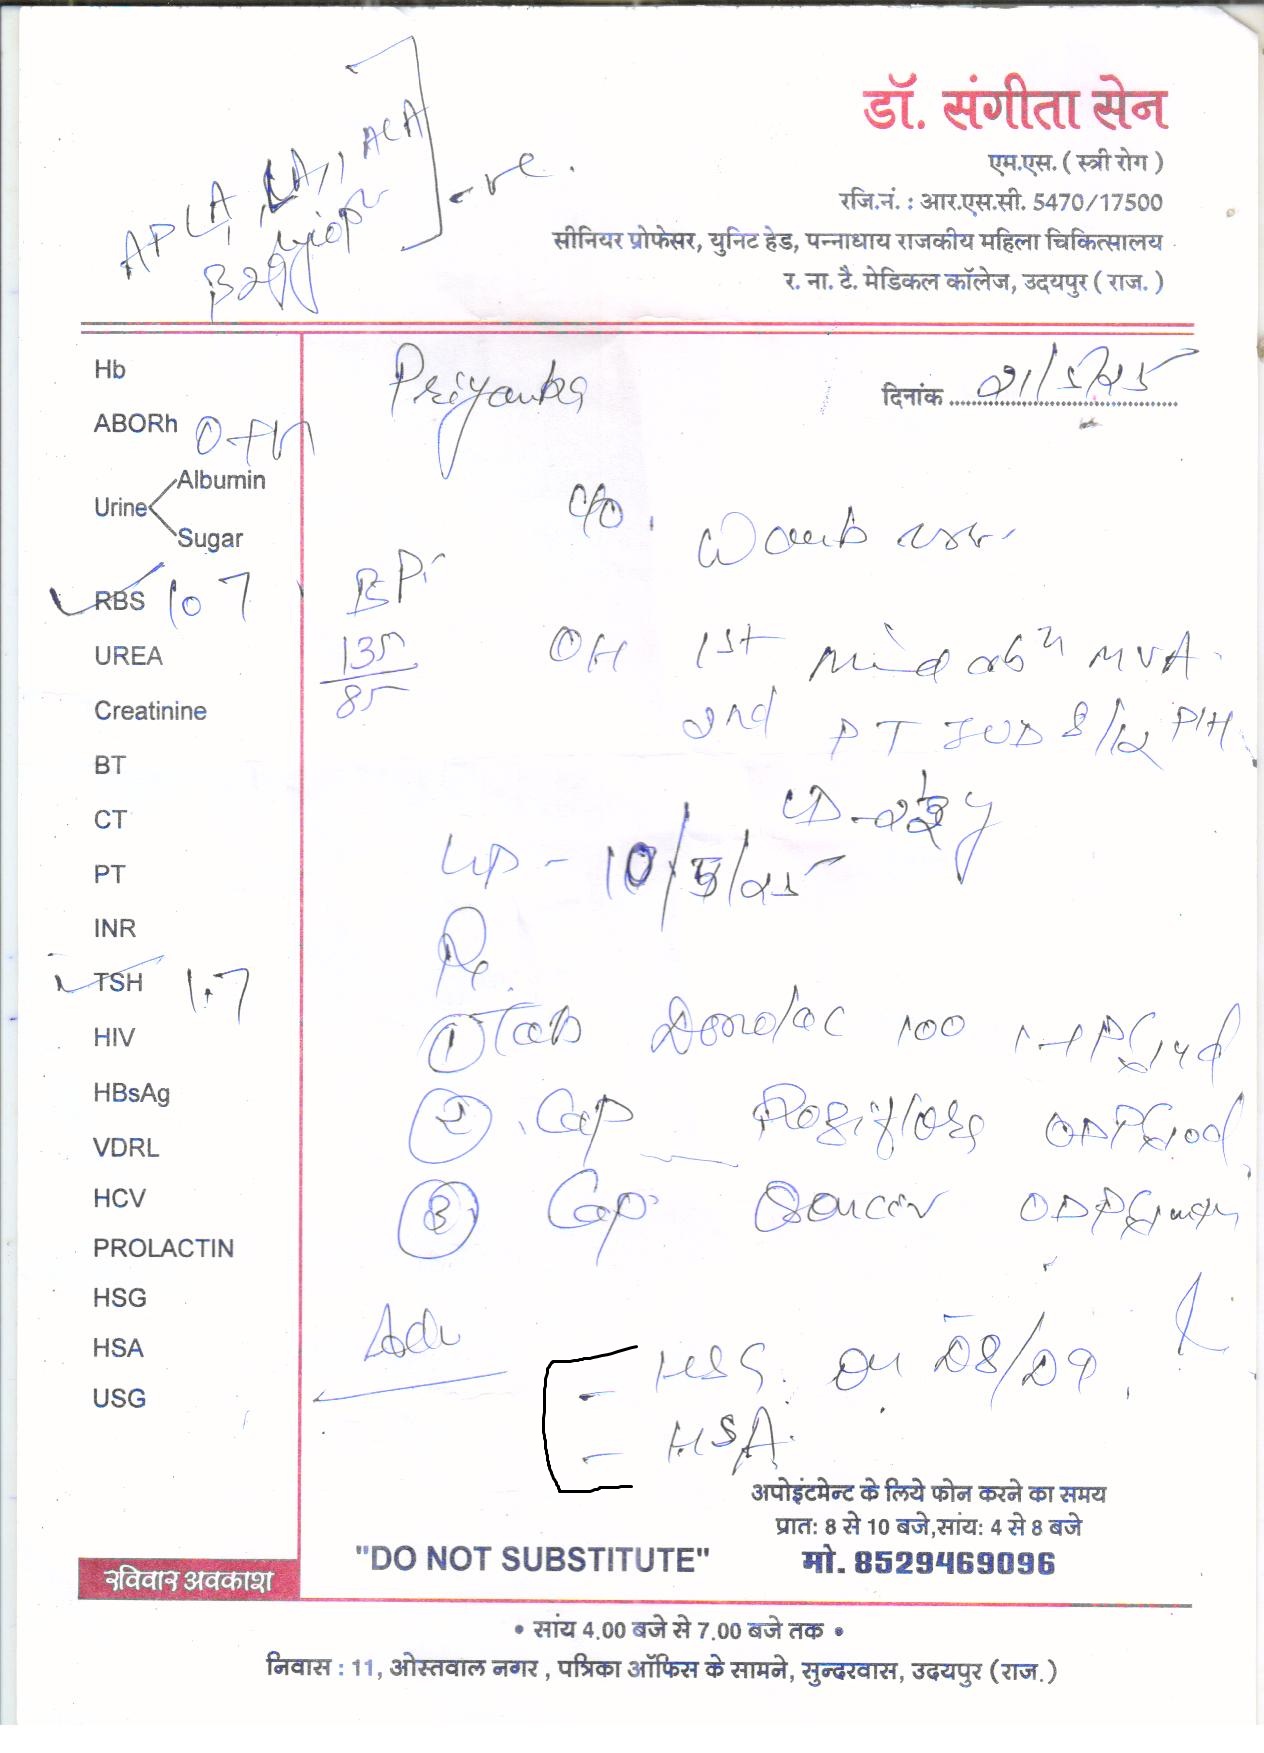 APLA, LA, ACA
-ve.
डॉ. संगीता सेन
एम.एस. ( स्त्री रोग )
रजि.नं. : आर.एस.सी. 5470/17500
सीनियर प्रोफेसर, युनिट हेड, पन्नाधाय राजकीय महिला चिकित्सालय
र. ना. टै. मेडिकल कॉलेज, उदयपुर ( राज. )
Priyanka
दिनांक 21/5/25
Hb
ABORh O+
Urine
Albumin
Sugar
RBS 107
UREA
Creatinine
BT
CT
PT
INR
TSH 1.7
HIV
HBsAg
VDRL
HCV
PROLACTIN
HSG
HSA
USG
C/O.
BP:
135
85
OH 1st MVA
2nd PT IUD 8/12 PIH
LD
10/5/25
Rx
① Tab 100
② Cap OD
③ Cap OD
Adv
- HSG. on D8/D9.
- HSA.
अपोइंटमेन्ट के लिये फोन करने का समय
प्रात: 8 से 10 बजे,सांय: 4 से 8 बजे
"DO NOT SUBSTITUTE"
मो. 8529469096
रविवार अवकाश
• सांय 4.00 बजे से 7.00 बजे तक •
निवास : 11, ओस्तवाल नगर , पत्रिका ऑफिस के सामने, सुन्दरवास, उदयपुर (राज.)